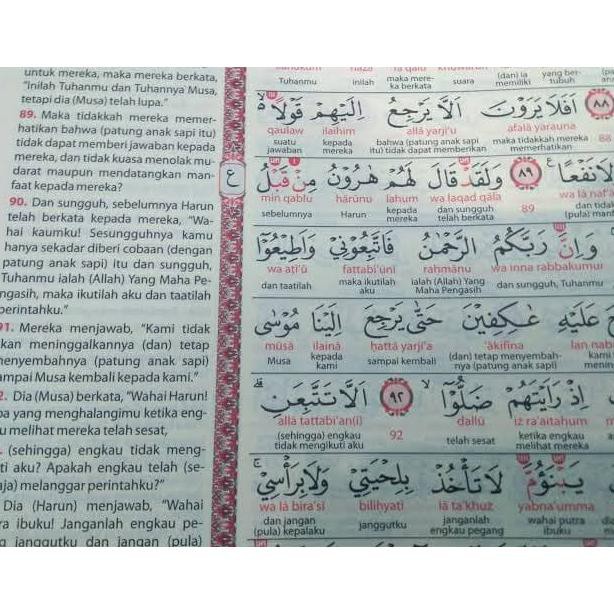 untuk mereka, maka mereka berkata,
"Inilah Tuhanmu dan Tuhannya Musa,
tetapi dia (Musa) telah lupa."
89. Maka tidakkah mereka memer-
hatikan bahwa (patung anak sapi itu)
tidak dapat memberi jawaban kepada
mereka, dan tidak kuasa menolak mu-
darat maupun mendatangkan man-
faat kepada mereka?
90. Dan sungguh, sebelumnya Harun
telah berkata kepada mereka, "Wa-
hai kaumku! Sesungguhnya kamu
hanya sekadar diberi cobaan (dengan
patung anak sapi) itu dan sungguh,
Tuhanmu ialah (Allah) Yang Maha Pe-
ngasih, maka ikutilah aku dan taatilah
perintahku."
91. Mereka menjawab, "Kami tidak
akan meninggalkannya (dan) tetap
menyembahnya (patung anak sapi)
sampai Musa kembali kepada kami."
Dia (Musa) berkata, "Wahai Harun!
yang menghalangimu ketika eng-
melihat mereka telah sesat,
(sehingga) engkau tidak meng-
aku? Apakah engkau telah (se-
melanggar perintahku?"
Dia (Harun) menjawab, "Wahai
ibuku! Janganlah engkau pe-
janggutku dan jangan (pula)
ع
Tuhanmu inilah maka mere- suara (dan) ia yang ber-
ka berkata memiliki tubuh
أَفَلَا يَرَوْنَ أَلَّا يَرْجِعُ إِلَيْهِمْ قَوْلًا ۙ
٨٨
qaulaw ilaihim allā yarji'u afalā yarauna 88
suatu kepada bahwa (patung anak sapi maka tidakkah mereka
jawaban mereka itu) tidak dapat memberikan memerhatikan
نَفْعًا ٨٩ وَلَقَدْ قَالَ لَهُمْ هٰرُوْنُ مِنْ قَبْلُ
min qablu hārūnu lahum wa laqad qāla 89
sebelumnya Harun kepada dan sungguh
mereka telah berkata
وَإِنَّ رَبَّكُمُ الرَّحْمٰنُ فَاتَّبِعُوْنِيْ وَأَطِيْعُوْٓا
wa aṭī'ū fattabi'ūnī rahmānu wa inna rabbakumur
dan taatilah maka ikutilah ialah (Allah) Yang dan sungguh, Tuhanmu
aku Maha Pengasih
عَلَيْهِ عٰكِفِيْنَ حَتّٰى يَرْجِعَ إِلَيْنَا مُوْسٰى
mūsā ilainā ḥattā yarji'a 'ākifīna
Musa kepada sampai kembali (dan) tetap menyembah-
kami nya (patung anak sapi)
إِذْ رَأَيْتَهُمْ ضَلُّوْٓا ۙ ٩٢ أَلَّا تَتَّبِعَنِ ۗ
allā tattabi'an(i) 92 ḍallū iż ra'aitahum
(sehingga) engkau telah sesat ketika engkau
tidak mengikuti aku melihat mereka
يَبْنَؤُمَّ لَا تَأْخُذْ بِلِحْيَتِيْ وَلَا بِرَأْسِيْ ۚ
wa lā bira'sī bilihyatī lā ta'khuż yabna'umma
dan jangan janggutku janganlah wahai putra
(pula) kepalaku engkau pegang ibuku